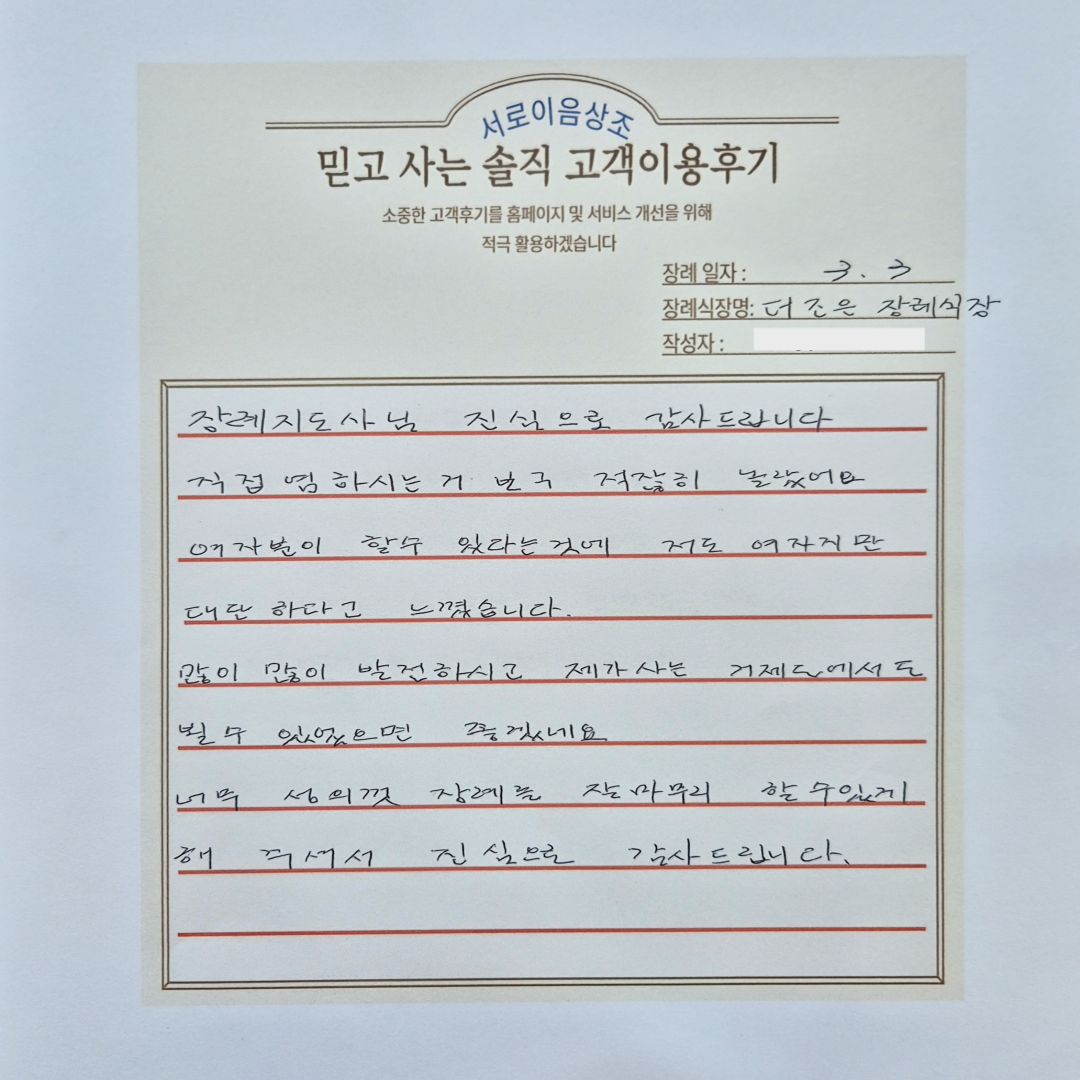 서로이음상조
믿고 사는 솔직 고객이용후기
소중한 고객후기를 홈페이지 및 서비스 개선을 위해
적극 활용하겠습니다
장례 일자 : 3. 3
장례식장명: 더 조은 장례식장
작성자 :
장례지도사님 진심으로 감사드립니다
직접 염하시는거 보구 적잖히 놀랐어요
여자분이 할수 있다는것에 저도 여자지만
대단 하다고 느꼈습니다.
많이 많이 발전하시고 제가사는 거제도에서도
뵐 수 있었으면 좋겠네요
너무 성의껏 장례를 잘 마무리 할 수있게
해 주셔서 진심으로 감사드립니다.